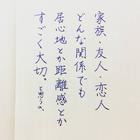 家族・友人・恋人
どんな関係でも
居心地とか距離感とか
すごく大切。と思う。